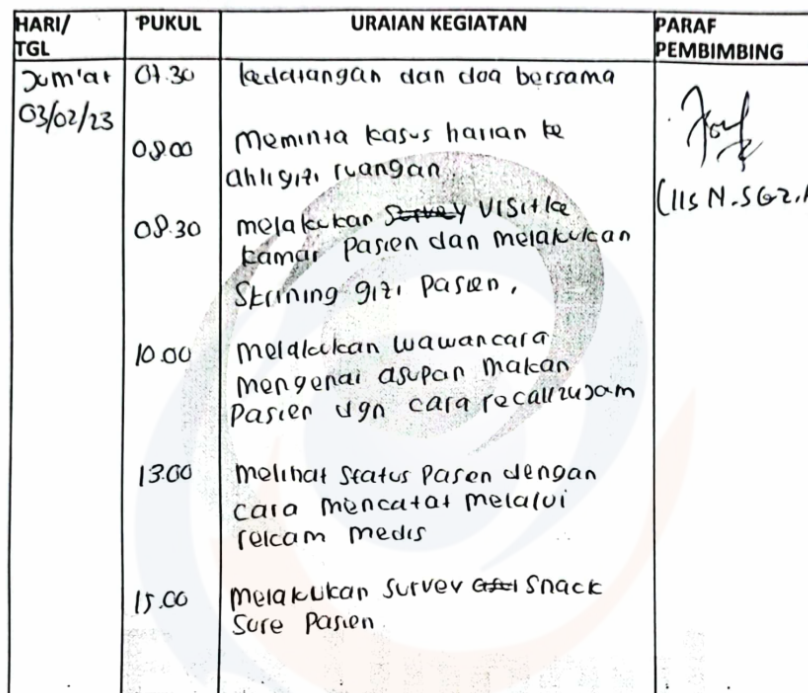 HARI/ TGL PUKUL URAIAN KEGIATAN PARAF PEMBIMBING
Jum'at 07.30 kedatangan dan doa bersama
03/02/23
08.00 Meminta kasus harian ke
ahli gizi ruangan
08.30 melakukan Survey VISit ke
kamar Pasien dan melakukan
Skrining gizi pasien.
10.00 melakukan wawancara
mengenai asupan makan
Pasien dgn cara recall 24 jam
13.00 melihat Status Pasen dengan
cara mencatat melalui
rekam medis
15.00 melakukan Survey Snack
Sore Pasien.
(Iis N. SGz.